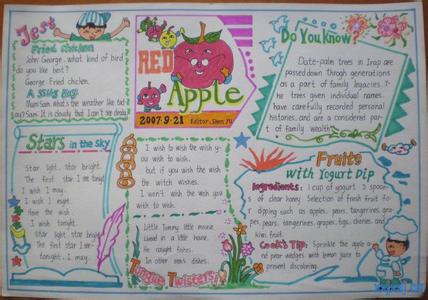 Jest
Fried Chicken
John: George, what kind of bird
do you like best?
George: Fried chicken.
A Silly Boy
Mum: Sam, what's the weather like tod
ay? Sam: It is cloudy that I can't see clearly.
RED
Apple
2007.9.21 Editor: Shen Yu
Do You Know?
Date-palm trees in Iraq are
passed down through generations
as a part of family legacies. T-
he trees given individual names
have carefully recorded personal
histories, and are considered a par-
t of family wealth.
Stars in the sky
Star light, Star bright,
The first star I see tonight.
I wish I may,
I wish I might,
Have the wish
I wish tonight
Star light star bright
The first star I see
tonight. I May.
I wish to wish the wish y-
ou wish to wish,
but if you wish the wish
the witch wishes,
I won't wish the wish you
wish to wish.
Little Tommy little mouse
Lived in a little house.
He caught fishes
In other men's dishes.
Tongue Twisters
Fruits
with Yogurt Dip
Ingredients: 1 cup of yogurt 2 spoon-
s of clear honey Selection of fresh fruit fo-
r dipping such as apples, pears, tangerines, gra-
pes, pears, tangerines, grapes, figs, cheries, and
kiwi fruit.
Cook's Tip: Sprinkle the apple a-
nd pear wedges with lemon juice to
prevent discoloring.